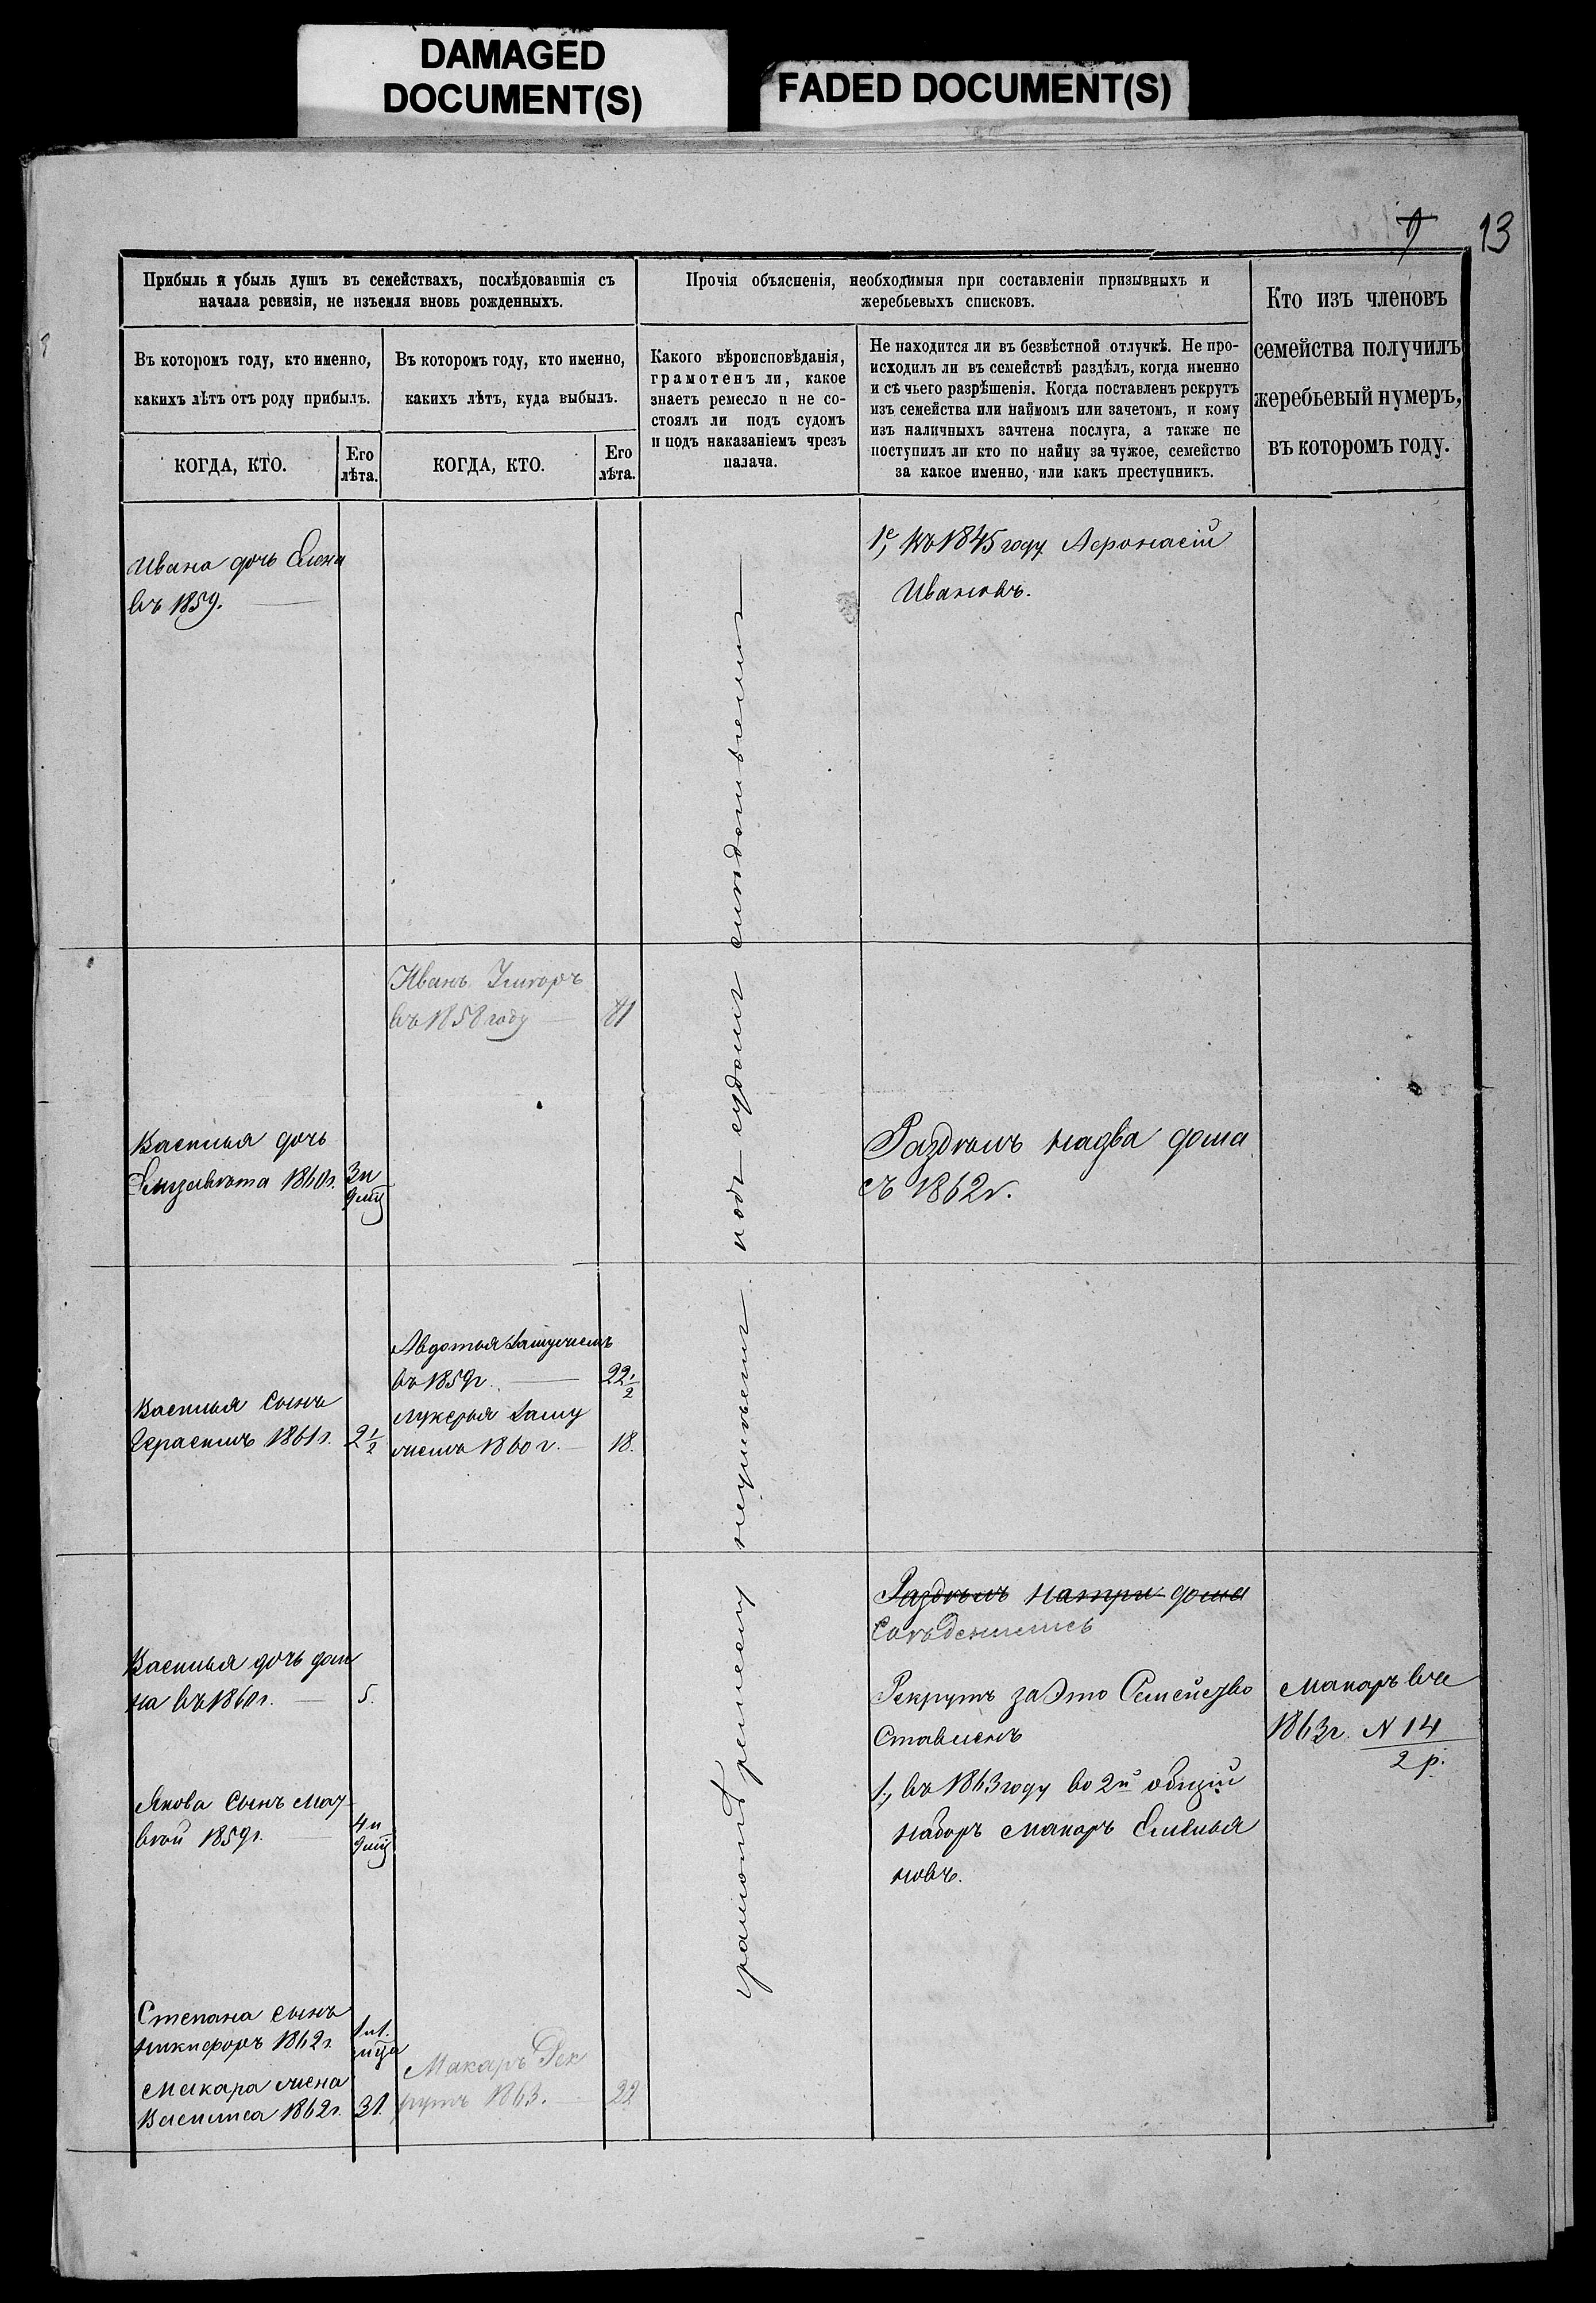 DAMAGED
DOCUMENT(S)
FADED DOCUMENT(S)
13
Прибыль и убыль душъ въ семействахъ, послѣдовавшія съ
начала ревизіи, не изъемля вновь рожденныхъ.
Прочія объясненія, необходимыя при составленіи призывныхъ и
жеребьевыхъ списковъ.
Кто изъ членовъ
семейства получилъ
жеребьевый нумеръ,
въ которомъ году.
Въ которомъ году, кто именно,
какихъ лѣтъ отъ роду прибылъ.
Въ которомъ году, кто именно,
какихъ лѣтъ, куда выбылъ.
Какого вѣроисповѣданія,
грамотенъ ли, какое
знаетъ ремесло и не со-
стоялъ ли подъ судомъ
и подъ наказаніемъ чрезъ
палача.
Не находится ли въ безвѣстной отлучкѣ. Не про-
исходилъ ли въ семействѣ раздѣлъ, когда именно
и съ чьего разрѣшенія. Когда поставленъ рекрутъ
изъ семейства или наймомъ или зачетомъ, и кому
изъ наличныхъ зачтена послуга, а также не
поступилъ ли кто по найму за чужое, семейство
за какое именно, или какъ преступникъ.
КОГДА, КТО.
Его
лѣта.
КОГДА, КТО.
Его
лѣта.
Ивана дочь Елена
въ 1859.
1е, Въ 1845 году Афонасій
Ивановъ.
Иванъ Умеръ
въ 1858 году
81
Василья дочь
Елизавета 1860г. 3 и
9 мц
Раздѣлъ надва дома
съ 1862г.
Авдотья Замужемъ
въ 1859г. 22 1/2
Василья Сынъ
Герасимъ 1861г. 2 1/2
Лукерья Заму
жемъ 1860г. 18.
грамотѣ ремеслу неумѣетъ подъ судомъ
Раздѣлъ натри дома
Василья дочь дом
на въ 1860г. 5.
Рекрутъ за Это Семейство
Ставленъ
Макаръ въ
1863г. N 14
2 р.
1, въ 1863 году во 2й общій
наборъ Макаръ Емелья
новъ.
Якова Сынъ Мат
вей 1859г. 4 и
9 мц
Степана Сынъ
Никифоръ 1862г. 1 и 1.
мца
Макара жена
Василиса 1862г. 21.
Макаръ Рек
рутъ 1863. 22